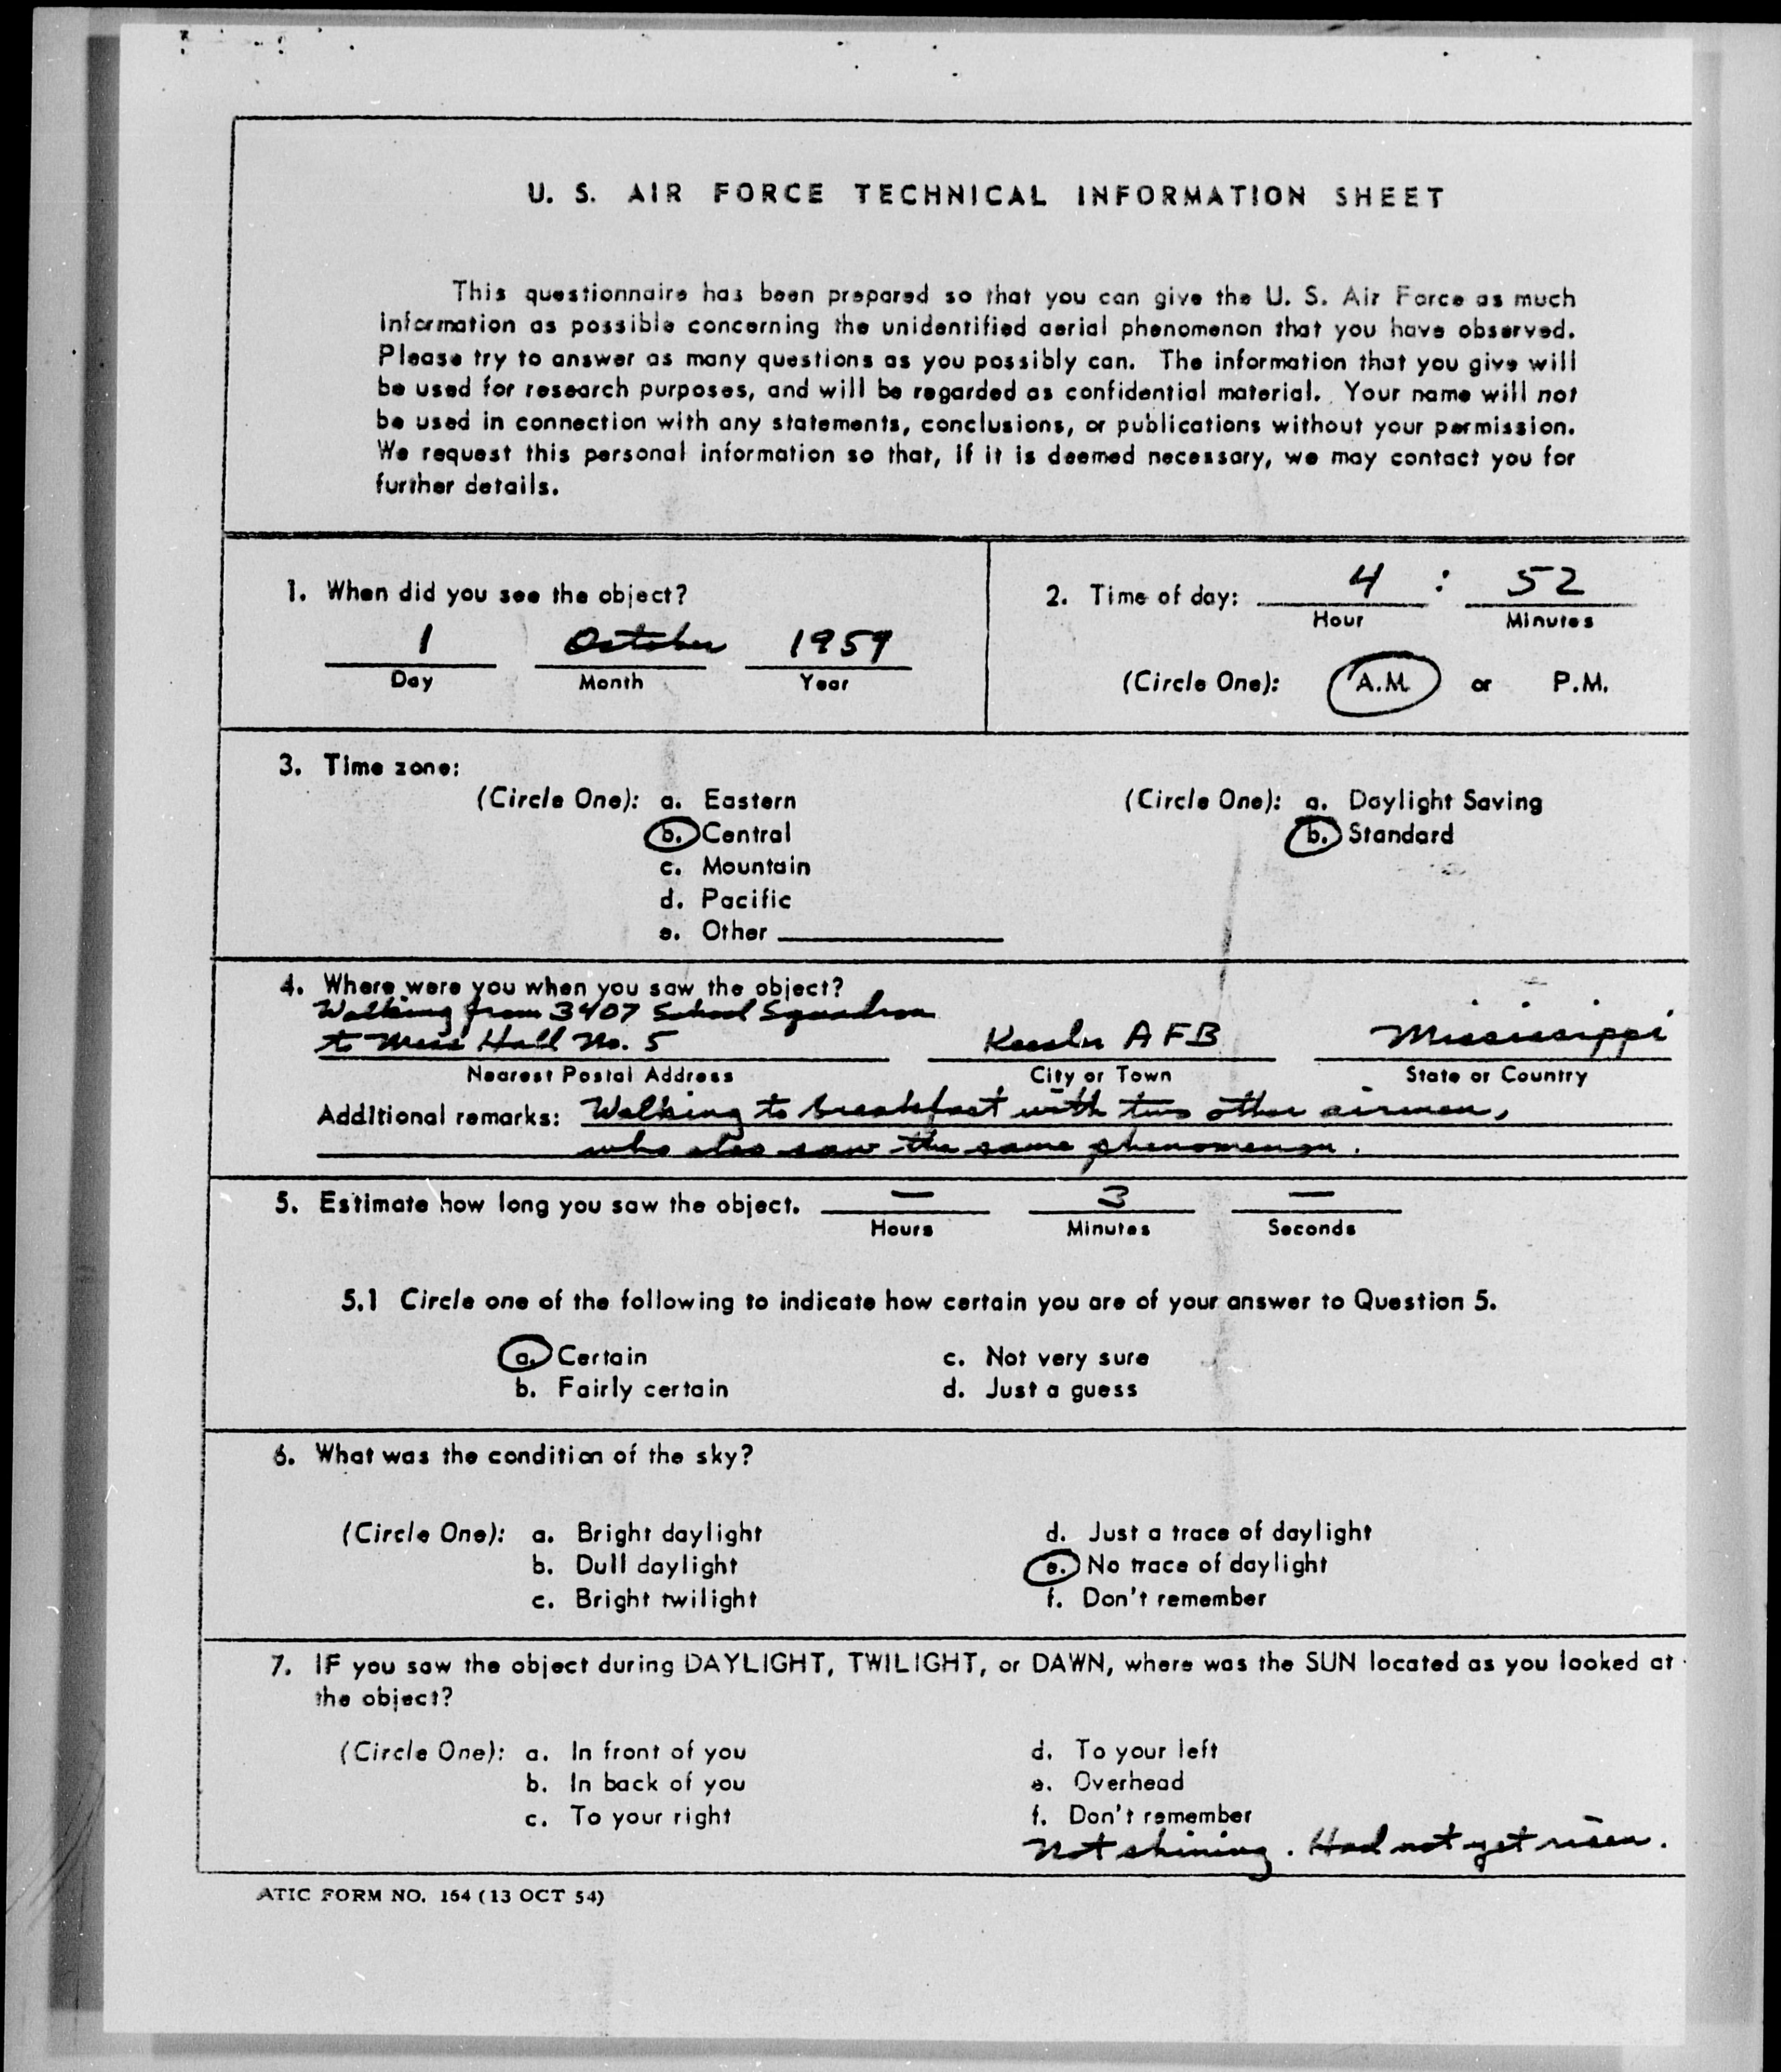 U. S. AIR FORCE TECHNICAL INFORMATION SHEET
This questionnaire has been prepared so that you can give the U. S. Air Force as much
information as possible concerning the unidentified aerial phenomenon that you have observed.
Please try to answer as many questions as you possibly can. The information that you give will
be used for research purposes, and will be regarded as confidential material. Your name will not
be used in connection with any statements, conclusions, or publications without your permission.
We request this personal information so that, if it is deemed necessary, we may contact you for
further details.
1. When did you see the object?
1 October 1959
Day Month Year
2. Time of day: 4 : 52
Hour Minutes
(Circle One): A.M. or P.M.
3. Time zone:
(Circle One): a. Eastern
b. Central
c. Mountain
d. Pacific
e. Other
(Circle One): a. Daylight Saving
b. Standard
4. Where were you when you saw the object?
Walking from 3407 School Squadron
to Mess Hall No. 5 Keesler AFB Mississippi
Nearest Postal Address City or Town State or Country
Additional remarks: Walking to breakfast with two other airmen,
who also saw the same phenomenon.
5. Estimate how long you saw the object. — 3 —
Hours Minutes Seconds
5.1 Circle one of the following to indicate how certain you are of your answer to Question 5.
a. Certain c. Not very sure
b. Fairly certain d. Just a guess
6. What was the condition of the sky?
(Circle One): a. Bright daylight d. Just a trace of daylight
b. Dull daylight e. No trace of daylight
c. Bright twilight f. Don't remember
7. IF you saw the object during DAYLIGHT, TWILIGHT, or DAWN, where was the SUN located as you looked at
the object?
(Circle One): a. In front of you d. To your left
b. In back of you e. Overhead
c. To your right f. Don't remember
Not shining. Had not yet risen.
ATIC FORM NO. 164 (13 OCT 54)